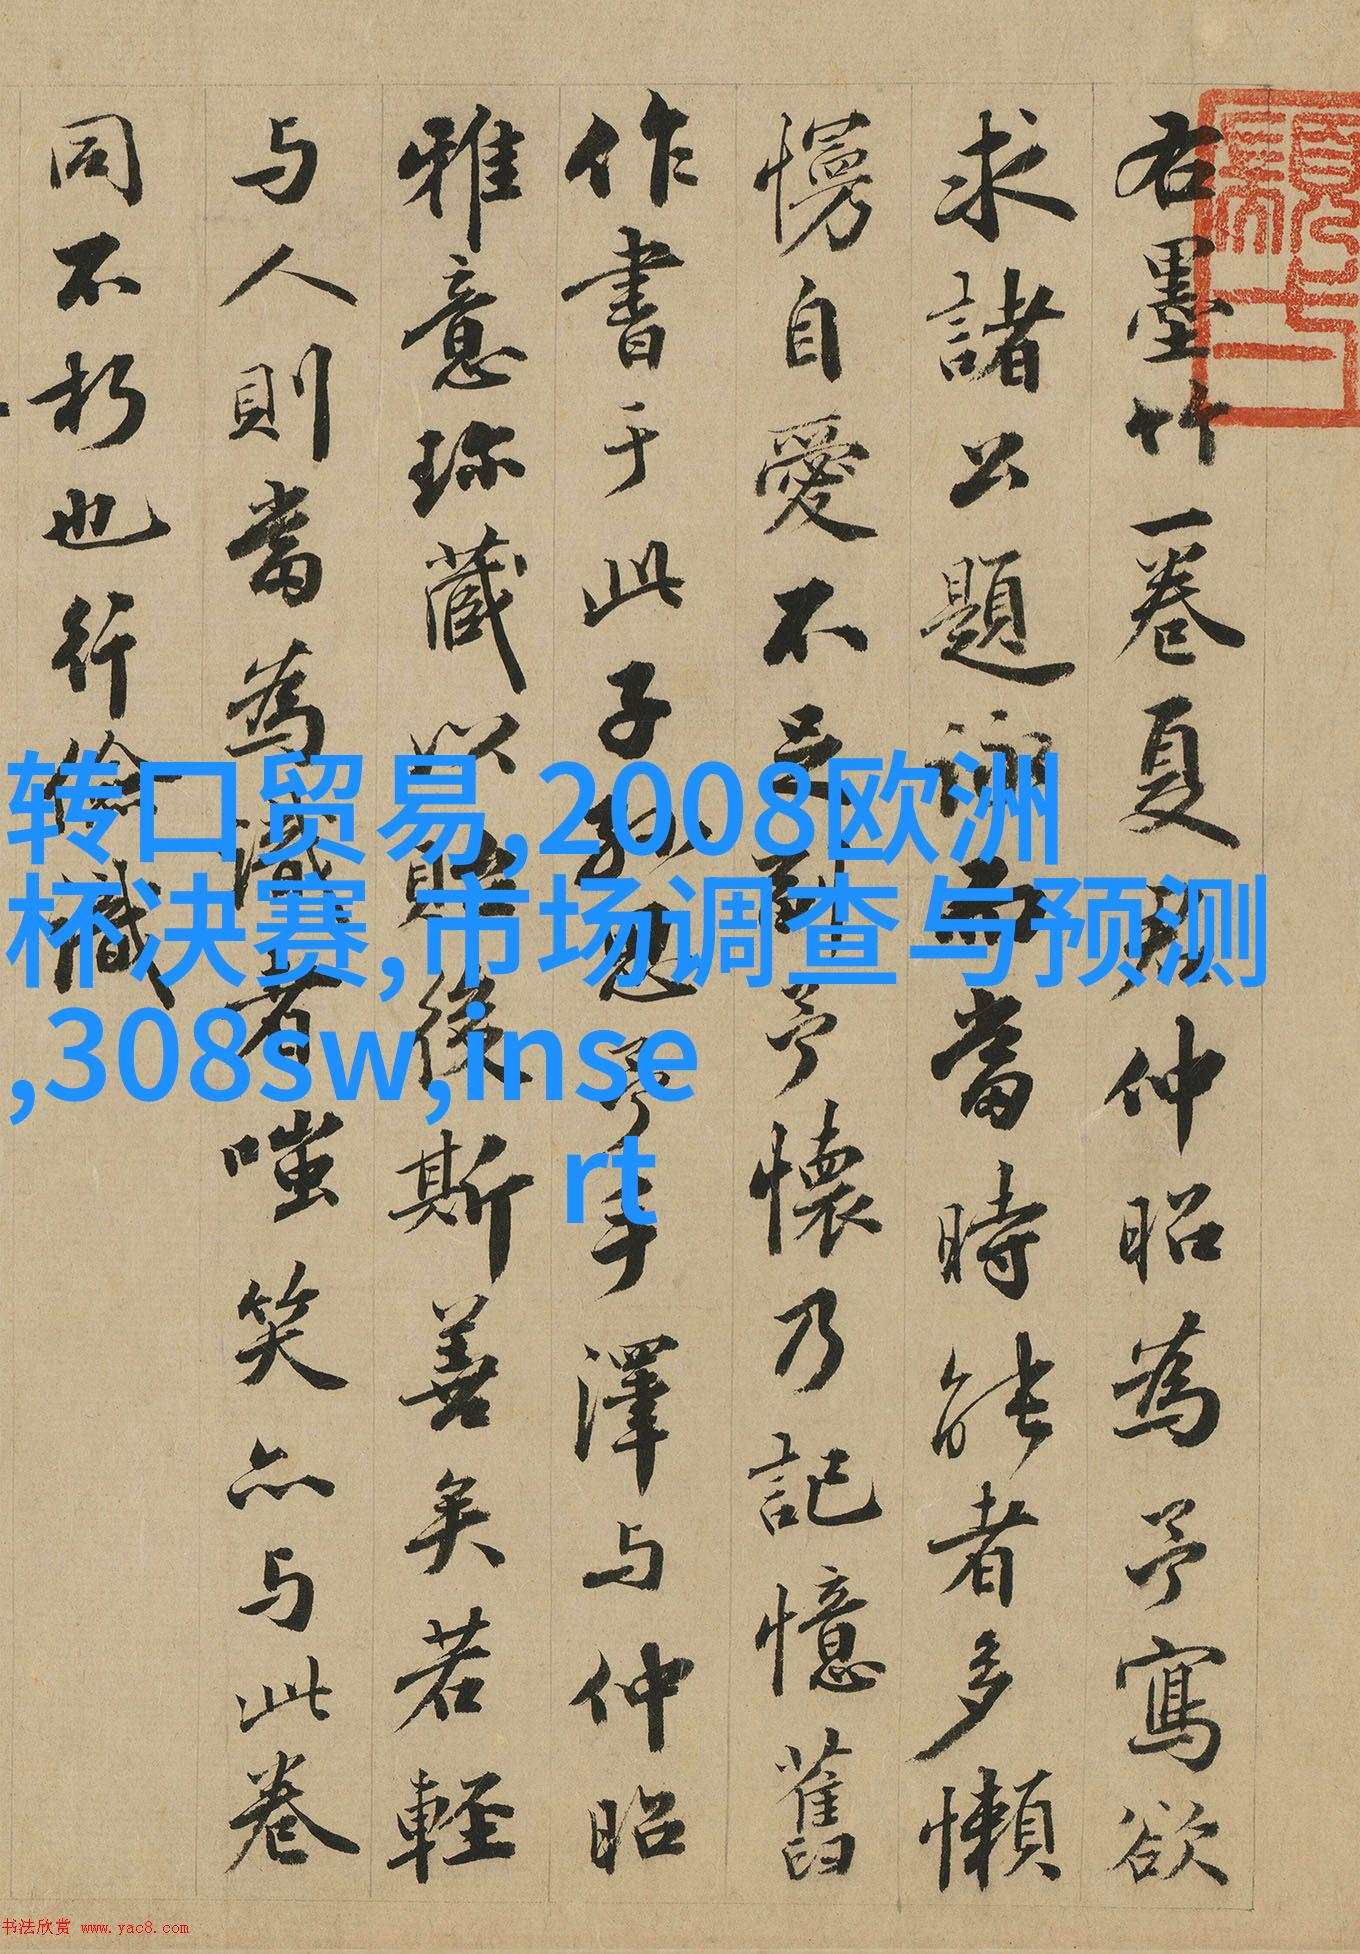 右墨竹一卷夏仲昭為予寫欲
求諸公題詠而當時能者多懶
慢自愛不足副予懷乃記憶舊
作書于此子孫思予手澤与仲昭
雅意珍藏以貽後斯善矣若輕
与人則當為識者嗤笑亦与此卷
同不朽也行儉識
转口贸易,2008欧洲
杯决赛,市场调查与预测
,308sw,inse
rt
书法欣赏 www.yac8.com